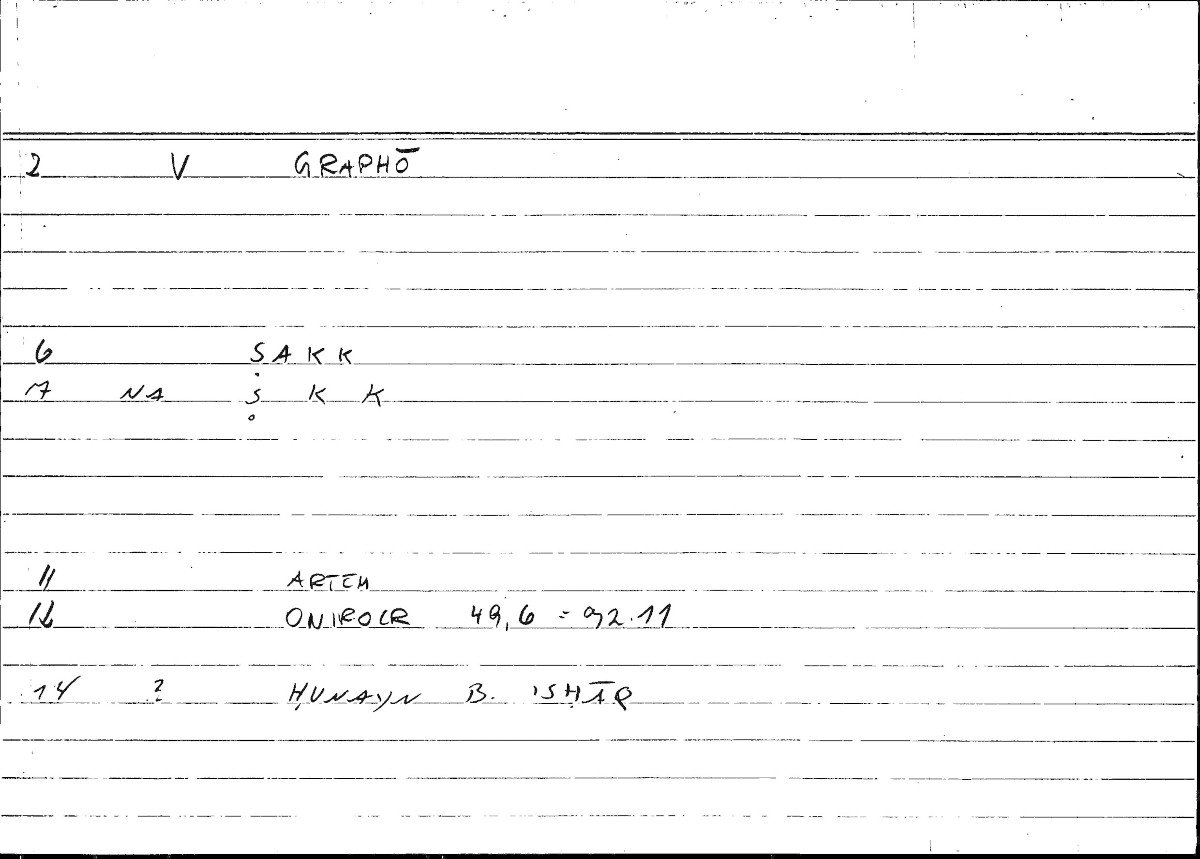 2 V GRAPHŌ
6 ṢAKK
7 NA Ṣ K K
11 ARTEM
12 ONIROCR 49,6 = 92.11
14 ? ḤUNAYN B. ISḤĀQ